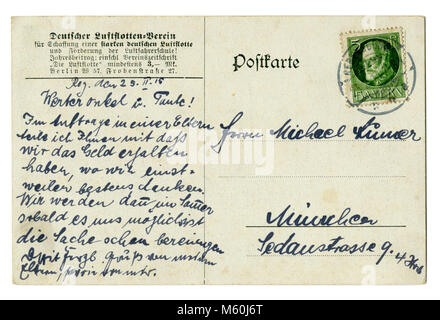 Deutscher Luftflotten-Verein
für Schaffung einer starken deutschen Luftflotte
und Förderung der Luftfahrerschule!
Jahresbeitrag: einschl Vereinszeitschrift
„Die Luftflotte“ mindestens 3,— Mk.
Berlin W 57, Frobenstraße 27.
Postkarte
5 BAYERN
Rog. den 25. II. 15
Werter onkel u. Tante!
Im auftrage meiner Eltern
teile ich Ihnen mit daß
wir das Geld erhalten
haben, wo wir einst-
weilen bestens danken.
Wir werden dann im
sobald es uns möglich ist
die Sache schon bereinigen
Gruß von
Herrn Michael
München
Sedanstrasse 9. 4
alamy
Image ID: M60J6T
www.alamy.com